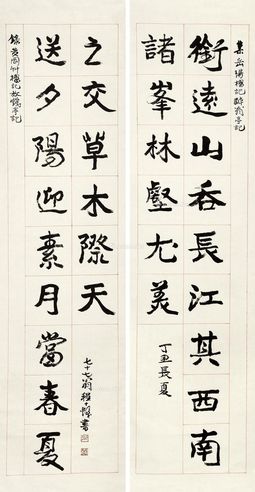 集岳陽樓記醉翁亭記
銜遠山吞長江其西南
諸峯林壑尤美
丁丑長夏
錄黃岡竹樓記放鶴亭記
送夕陽迎素月當春夏
之交草木際天
七十七翁程十髮書